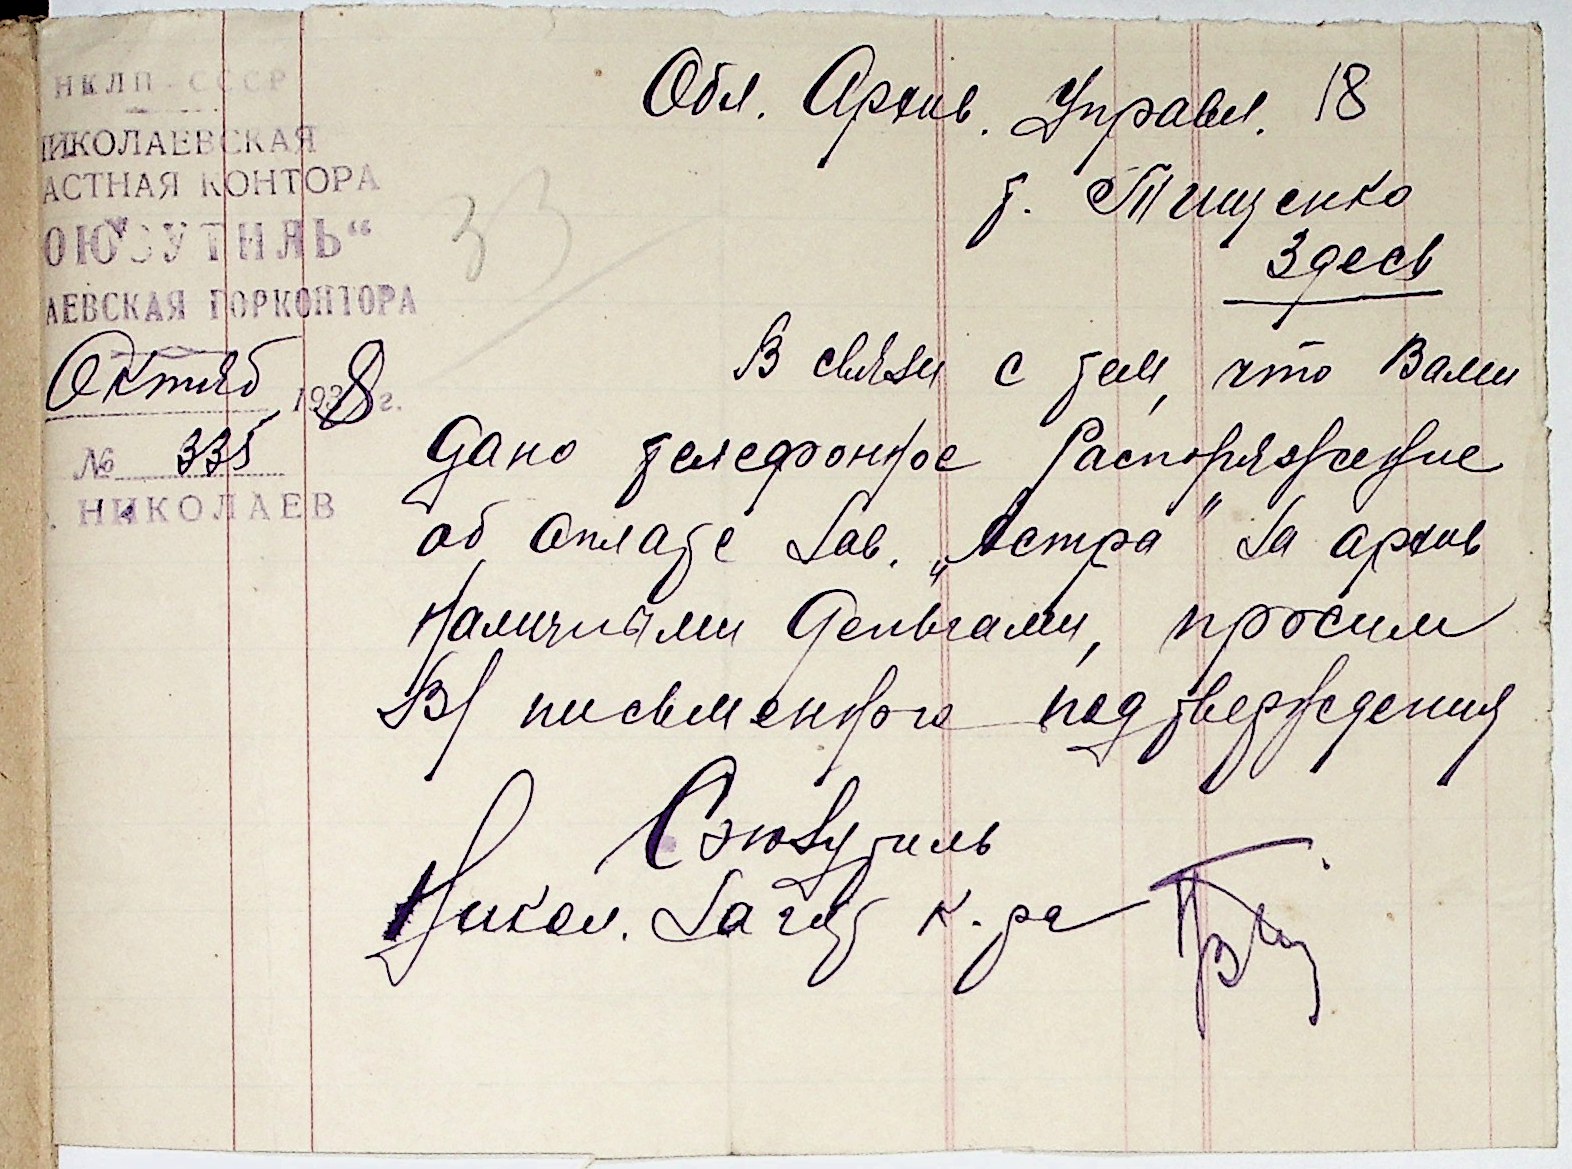 НКЛП - СССР
НИКОЛАЕВСКАЯ
АСТНАЯ КОНТОРА
ОЮЗУТИЛЬ“
АЕВСКАЯ ГОРКОНТОРА
Октяб 1938 г.
№ 335
. НИКОЛАЕВ
33
Обл. Архив. Управл. 18
т. Тищенко
Здесь
В связи с тем, что Вами
дано телефонное распоряжение
об оплате зав. „Астра" за архив
наличными деньгами, просим
В/ письменного подтверждения
Союзутиль
Никол. Загот к-ра